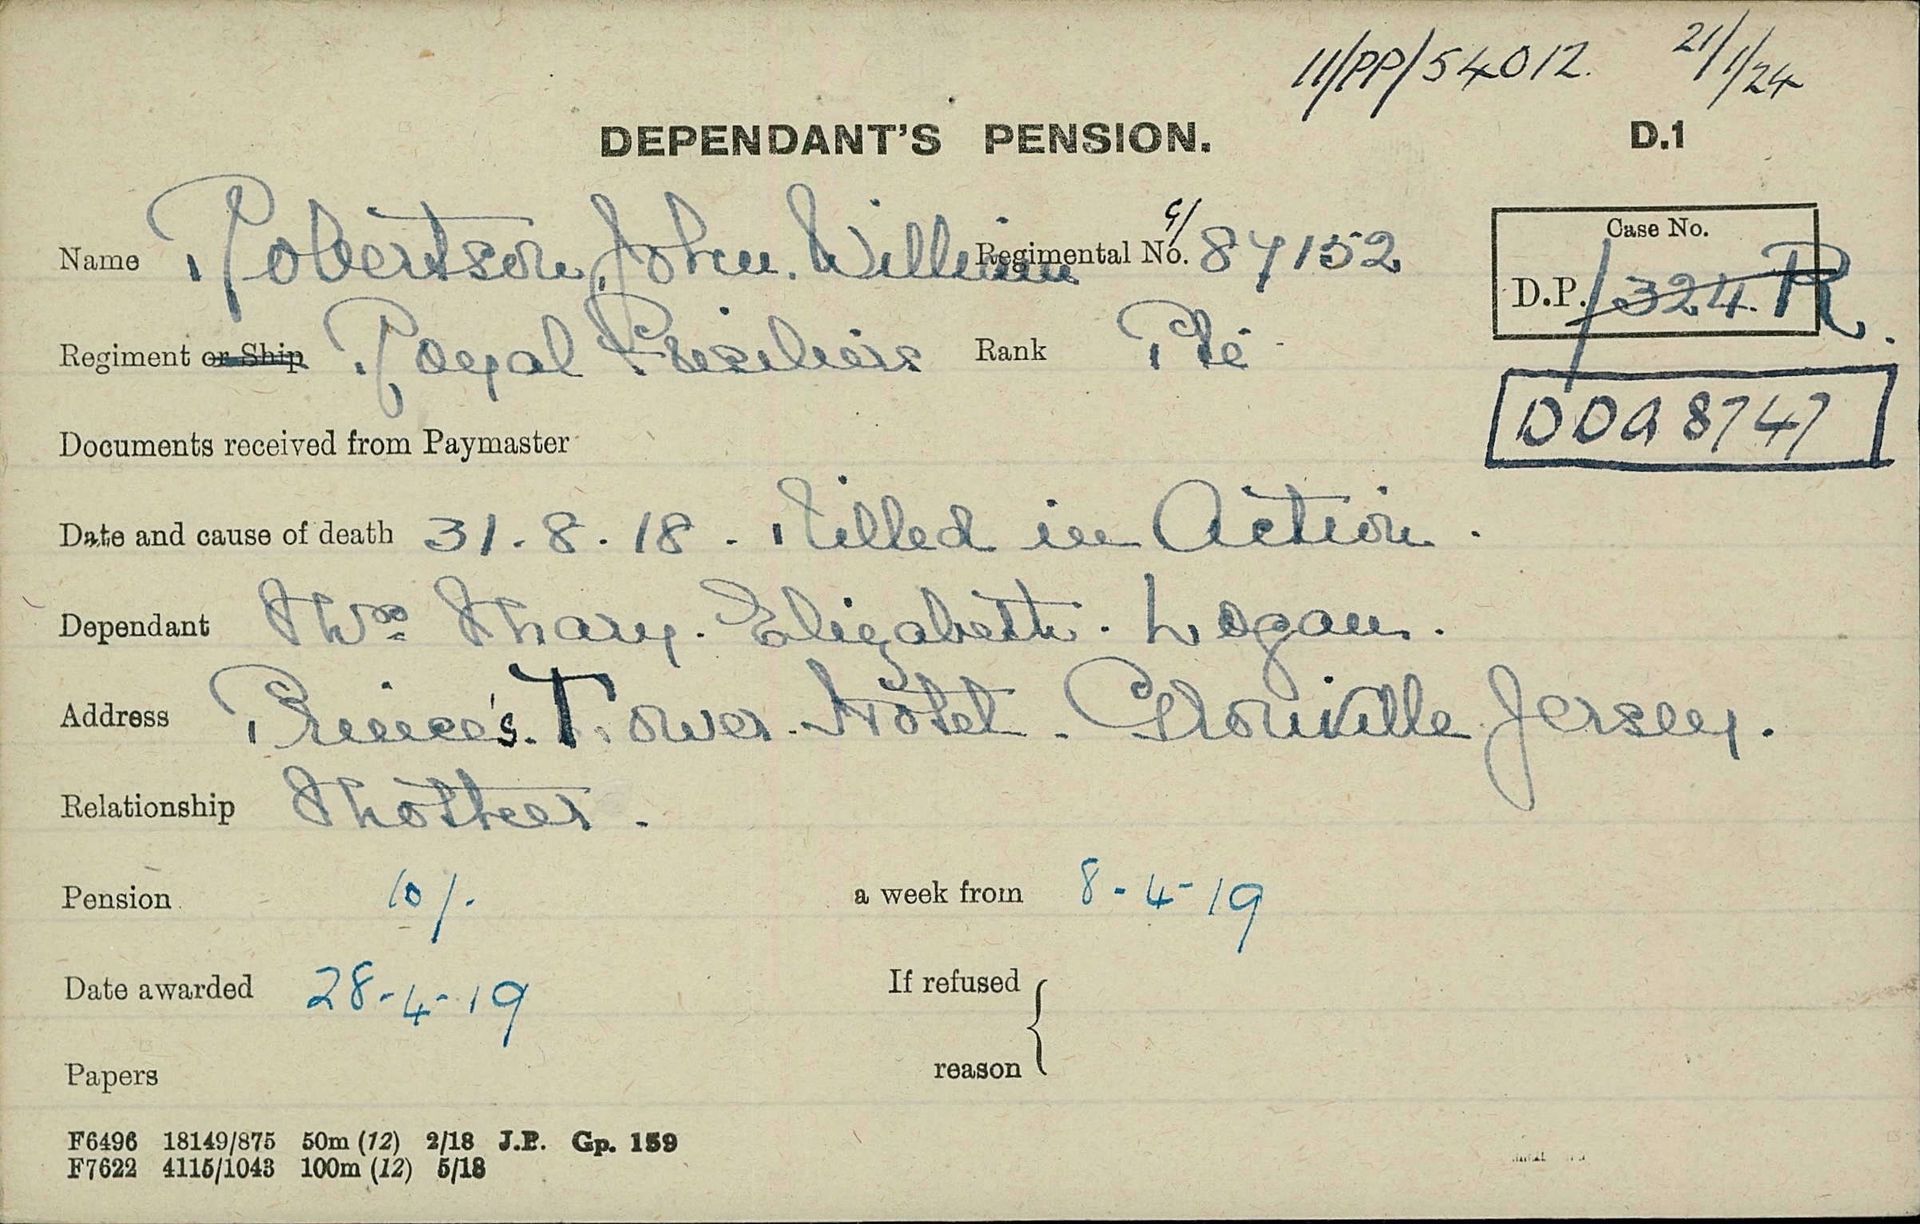 11/PP/54012. 21/1/24
DEPENDANT'S PENSION. D.1
Name Robertson John. William Regimental No. G/ 87152
Case No.
D.P. 324. R.
Regiment or Ship Royal Fusiliers Rank Pte
DDA 8747
Documents received from Paymaster
Date and cause of death 31.8.18. Killed in Action.
Dependant Mrs Mary. Elizabeth. Logan.
Address Prince's. Tower. Hotel. Grouville Jersey.
Relationship Mother.
Pension 10/. a week from 8-4-19
Date awarded 28-4-19 If refused
Papers reason
F6496 18149/875 50m (12) 2/18 J.P. Gp. 159
F7622 4115/1043 100m (12) 5/18